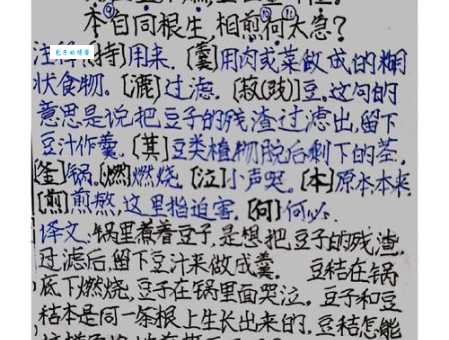 本自同根生,相煎⑩何⑪太急?
[持]用来.[羹]用肉或菜做成的糊
状食物.[漉]过滤.[菽(豉)]豆,这句的
意思是说把豆子的残渣过滤出,留下
豆汁作羹.[萁]豆类植物脱后剩下的茎.
[釜]锅.[燃]燃烧[泣]小声哭.[本]原本本来.
[煎]煎熬,这里指迫害.[何]何必.
译文:锅里煮着豆子,是想把豆子的残渣
过滤后,留下豆汁来做成羹. 豆秸在锅
底下燃烧,豆子在锅里面哭泣. 豆子和豆
秸本是同一条根上生长出来的,豆秸怎能